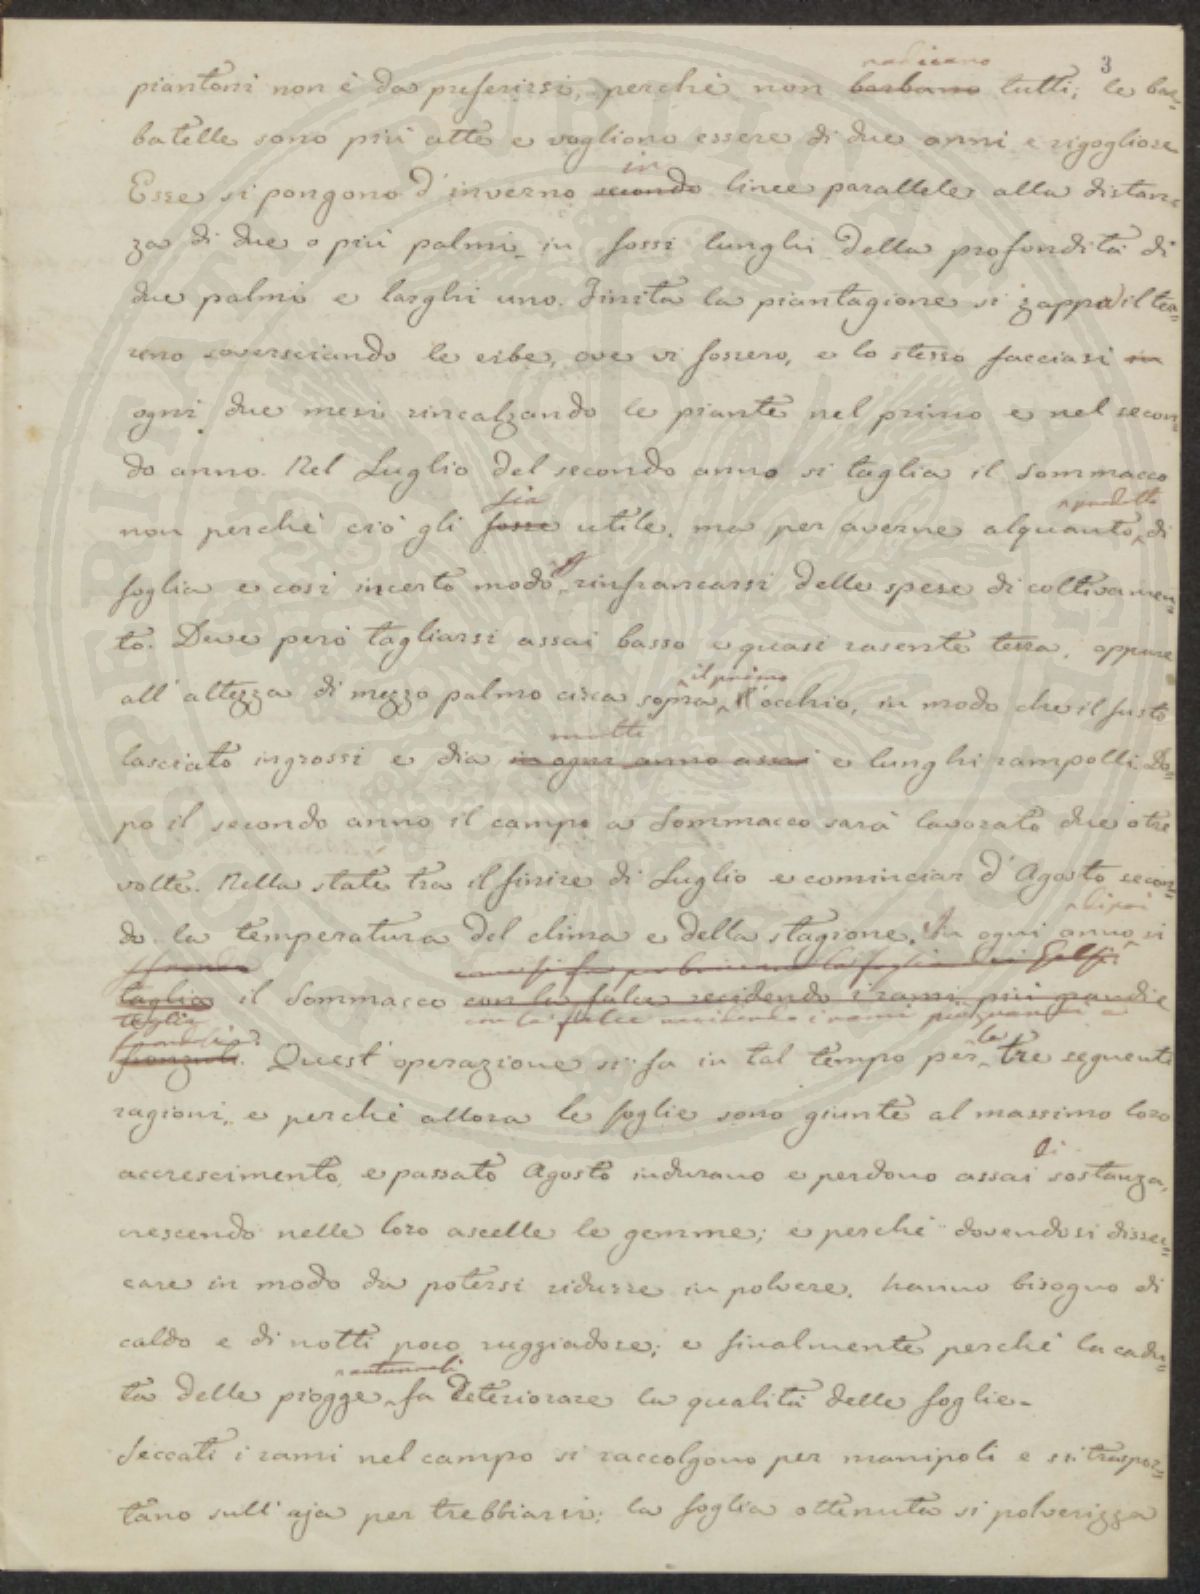 3
radicano
piantoni non è da preferirsi, perchè non barbano tutti; le bar=
batelle sono più atte e vogliono essere di due anni e rigogliose
in
Esse si pongono d'inverno secondo linee parallele alla distan=
za di due o più palmi in fossi lunghi della profondità di
due palmi e larghi uno. Finita la piantagione si zappa il ter=
reno soversciando le erbe, ove vi fossero, e lo stesso facciasi in
ogni due mesi rincalzando le piante nel primo e nel secon=
do anno. Nel Luglio del secondo anno si taglia il Sommacco
sia prodotto
non perchè ciò gli fosse utile, ma per averne alquanto di
foglia e così incerto modo rinfrancarsi delle spese di coltivamen=
to. Deve però tagliarsi assai basso e quasi rasente terra, oppure
il primo
all'altezza di mezzo palmo circa sopra l'occhio, in modo che il fusto
molti
lasciato ingrossi e dia in ogni anno assai e lunghi rampolli. Do=
po il secondo anno il campo a Sommacco sarà lavorato due o tre
volte. Nella state tra il finire di Luglio e cominciar d'Agosto secon=
di poi
do la temperatura del clima e della stagione. In ogni anno si
sfronda
taglia il Sommacco con la falce recidendo i rami più grandi e
taglia con la falce recidendo i rami più grandi e
fronzuti. Quest'operazione si fa in tal tempo per le tre seguenti
ragioni, e perchè allora le foglie sono giunte al massimo loro
di
accrescimento, e passato Agosto indurano e perdono assai sostanza,
crescendo nelle loro ascelle le gemme; e perchè dovendosi dissec=
care in modo da potersi ridurre in polvere, hanno bisogno di
caldo e di notti poco ruggiadose; e finalmente perchè la cadu=
autunnali
ta delle piogge fa deteriorare la qualità delle foglie.
Seccati i rami nel campo si raccolgono per manipoli e si traspor=
tano sull'aja per trebbiarsi; la foglia ottenuta si polverizza